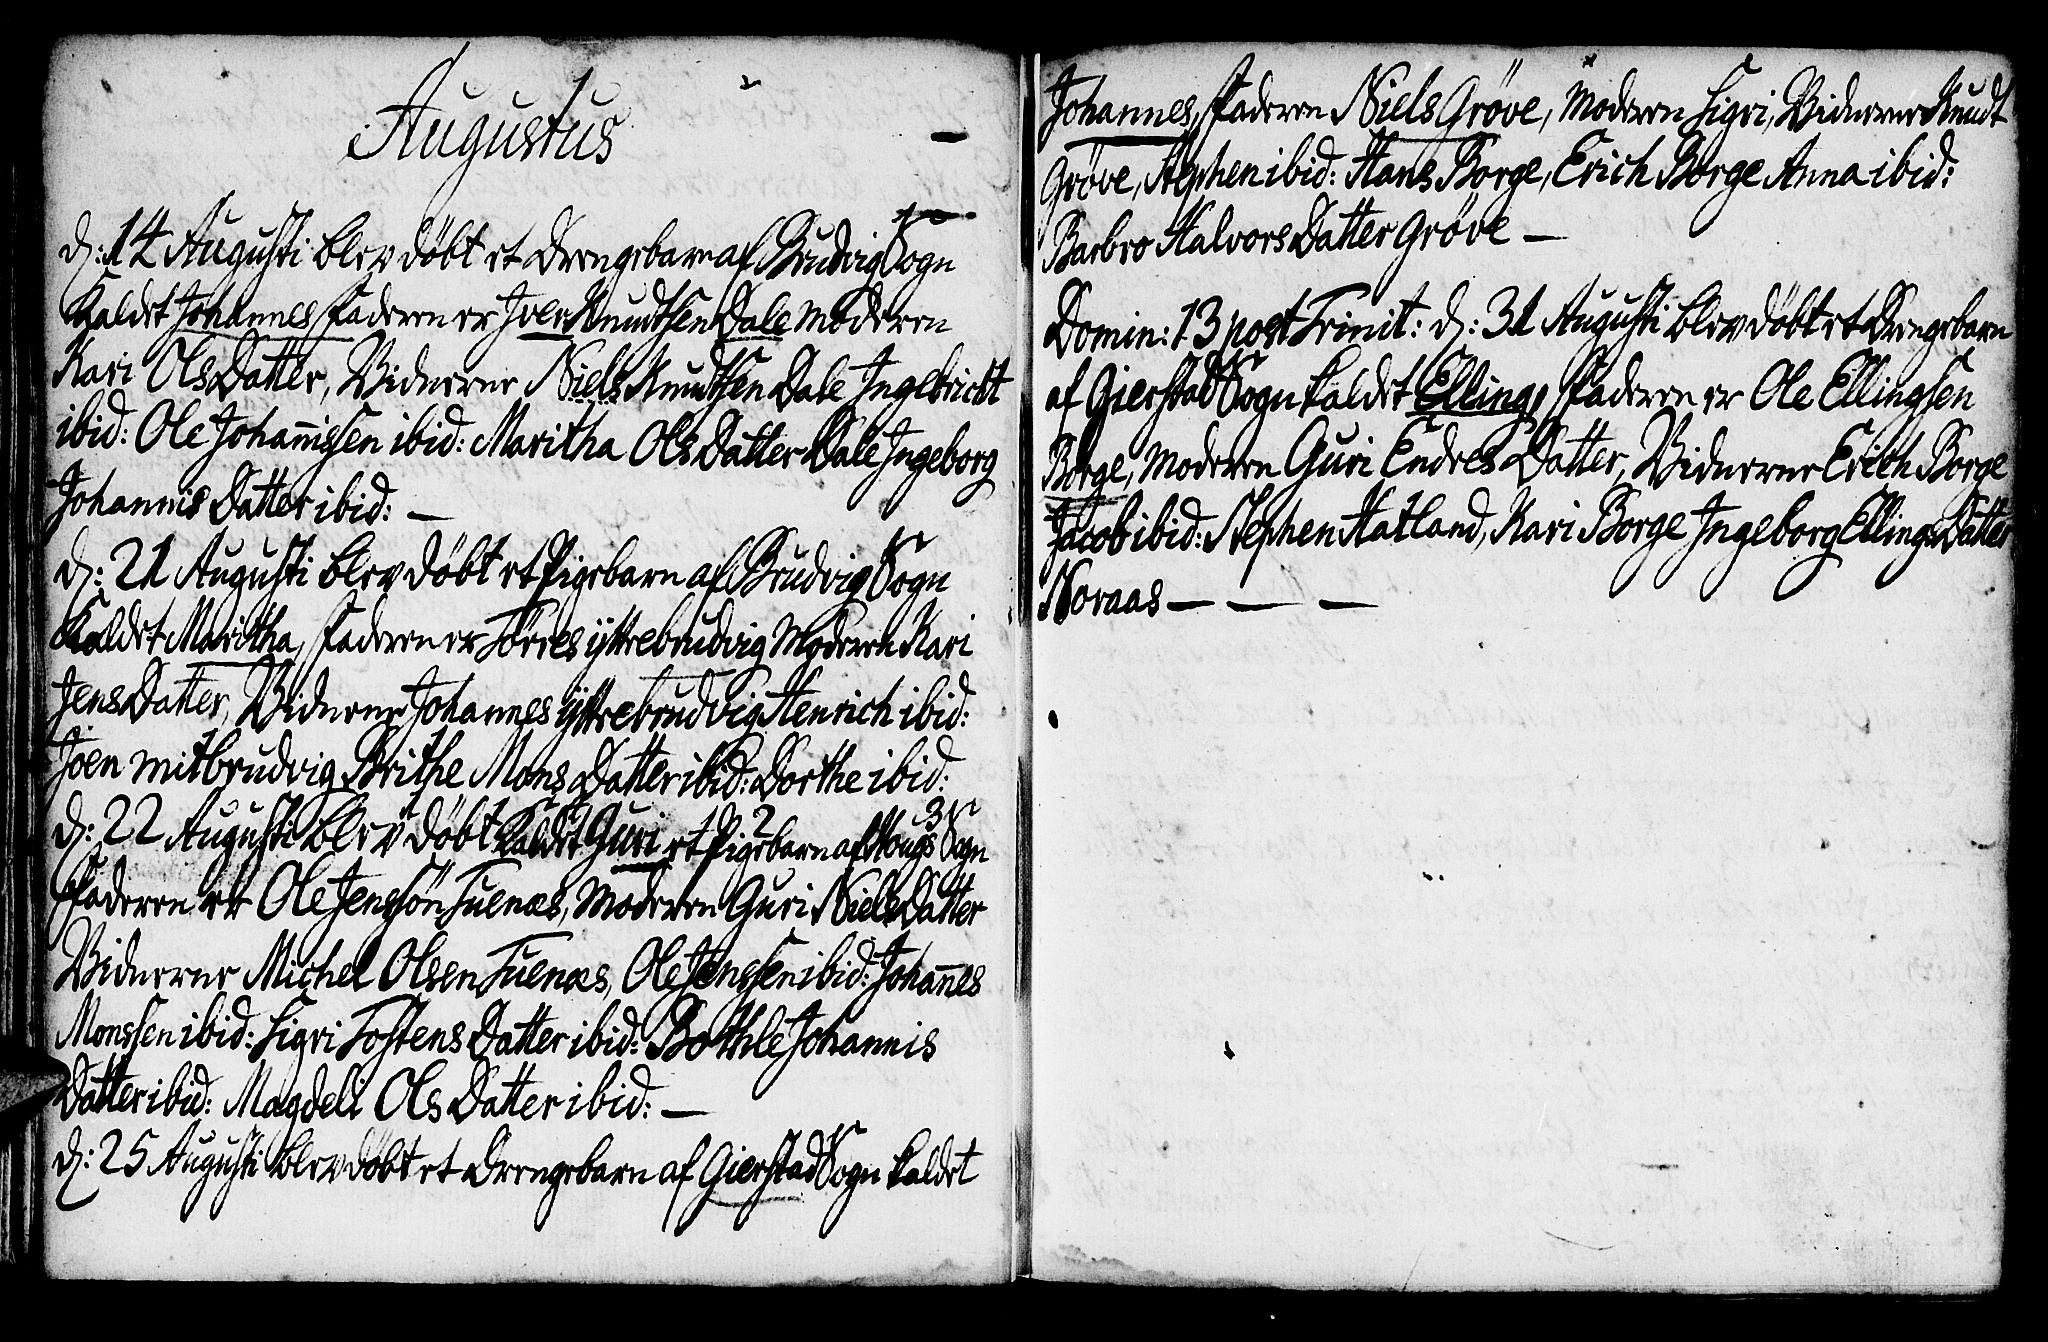 Augustus
d: 14 Augusti blev döbt et Drengebarn af Brudvig Sogn
Kaldet Johannes, Faderen er Iver Knudtsen Dale Moderen
Kari Ols Datter, Vidnerne Niels Knudtsen Dale Ingebricht
ibid: Ole Johannissen ibid: Maritha Ols Datter Dale Ingeborg
Johannis Datter ibid: —
d: 21 Augusti blev döbt et Pigebarn af Brudvig Sogn
Kaldet Maritha, Faderen er Törres ÿttrebrudvig Moderen Kari
Jens Datter, Vidnerne Johannes ÿttrebrudvig Henrich ibid:
Joen mitbrudvig Brithe Mons Datter ibid: Dorthe ibid:
d: 22 Augusti blev döbt kaldet Guri et Pigebarn af Hougs Sogn
Faderen er Ole Jenssön Tuenæs, Moderen Guri Niels Datter
Vidnerne Michel Olsen Tuenæs, Ole Jenssen ibid: Johan̅es
Monssen ibid: Sigri Tostens Datter ibid: Bothle Johannis
Datter ibid: Magdeli Ols Datter ibid: —
d: 25 Augusti blev döbt et Drengebarn af Gierstad Sogn kaldet
Johannes, Faderen Niels Gröve, Moderen Sigri, Vidnerne Knudt
Gröve, Stephen ibid: Hans Borge, Erich Borge Anna ibid:
Barbro Halvors Datter Gröve —
Domin: 13 post Trinit: d: 31 Augusti blev döbt et Drengebarn
af Gierstad Sogn kaldet Elling, Faderen er Ole Ellingsen
Borge, Moderen Guri Endres Datter, Vidnerne Erich Borge
Jacob ibid: Stephen Hatland, Kari Borge Ingeborg Ellings Datter
Noraas — — —